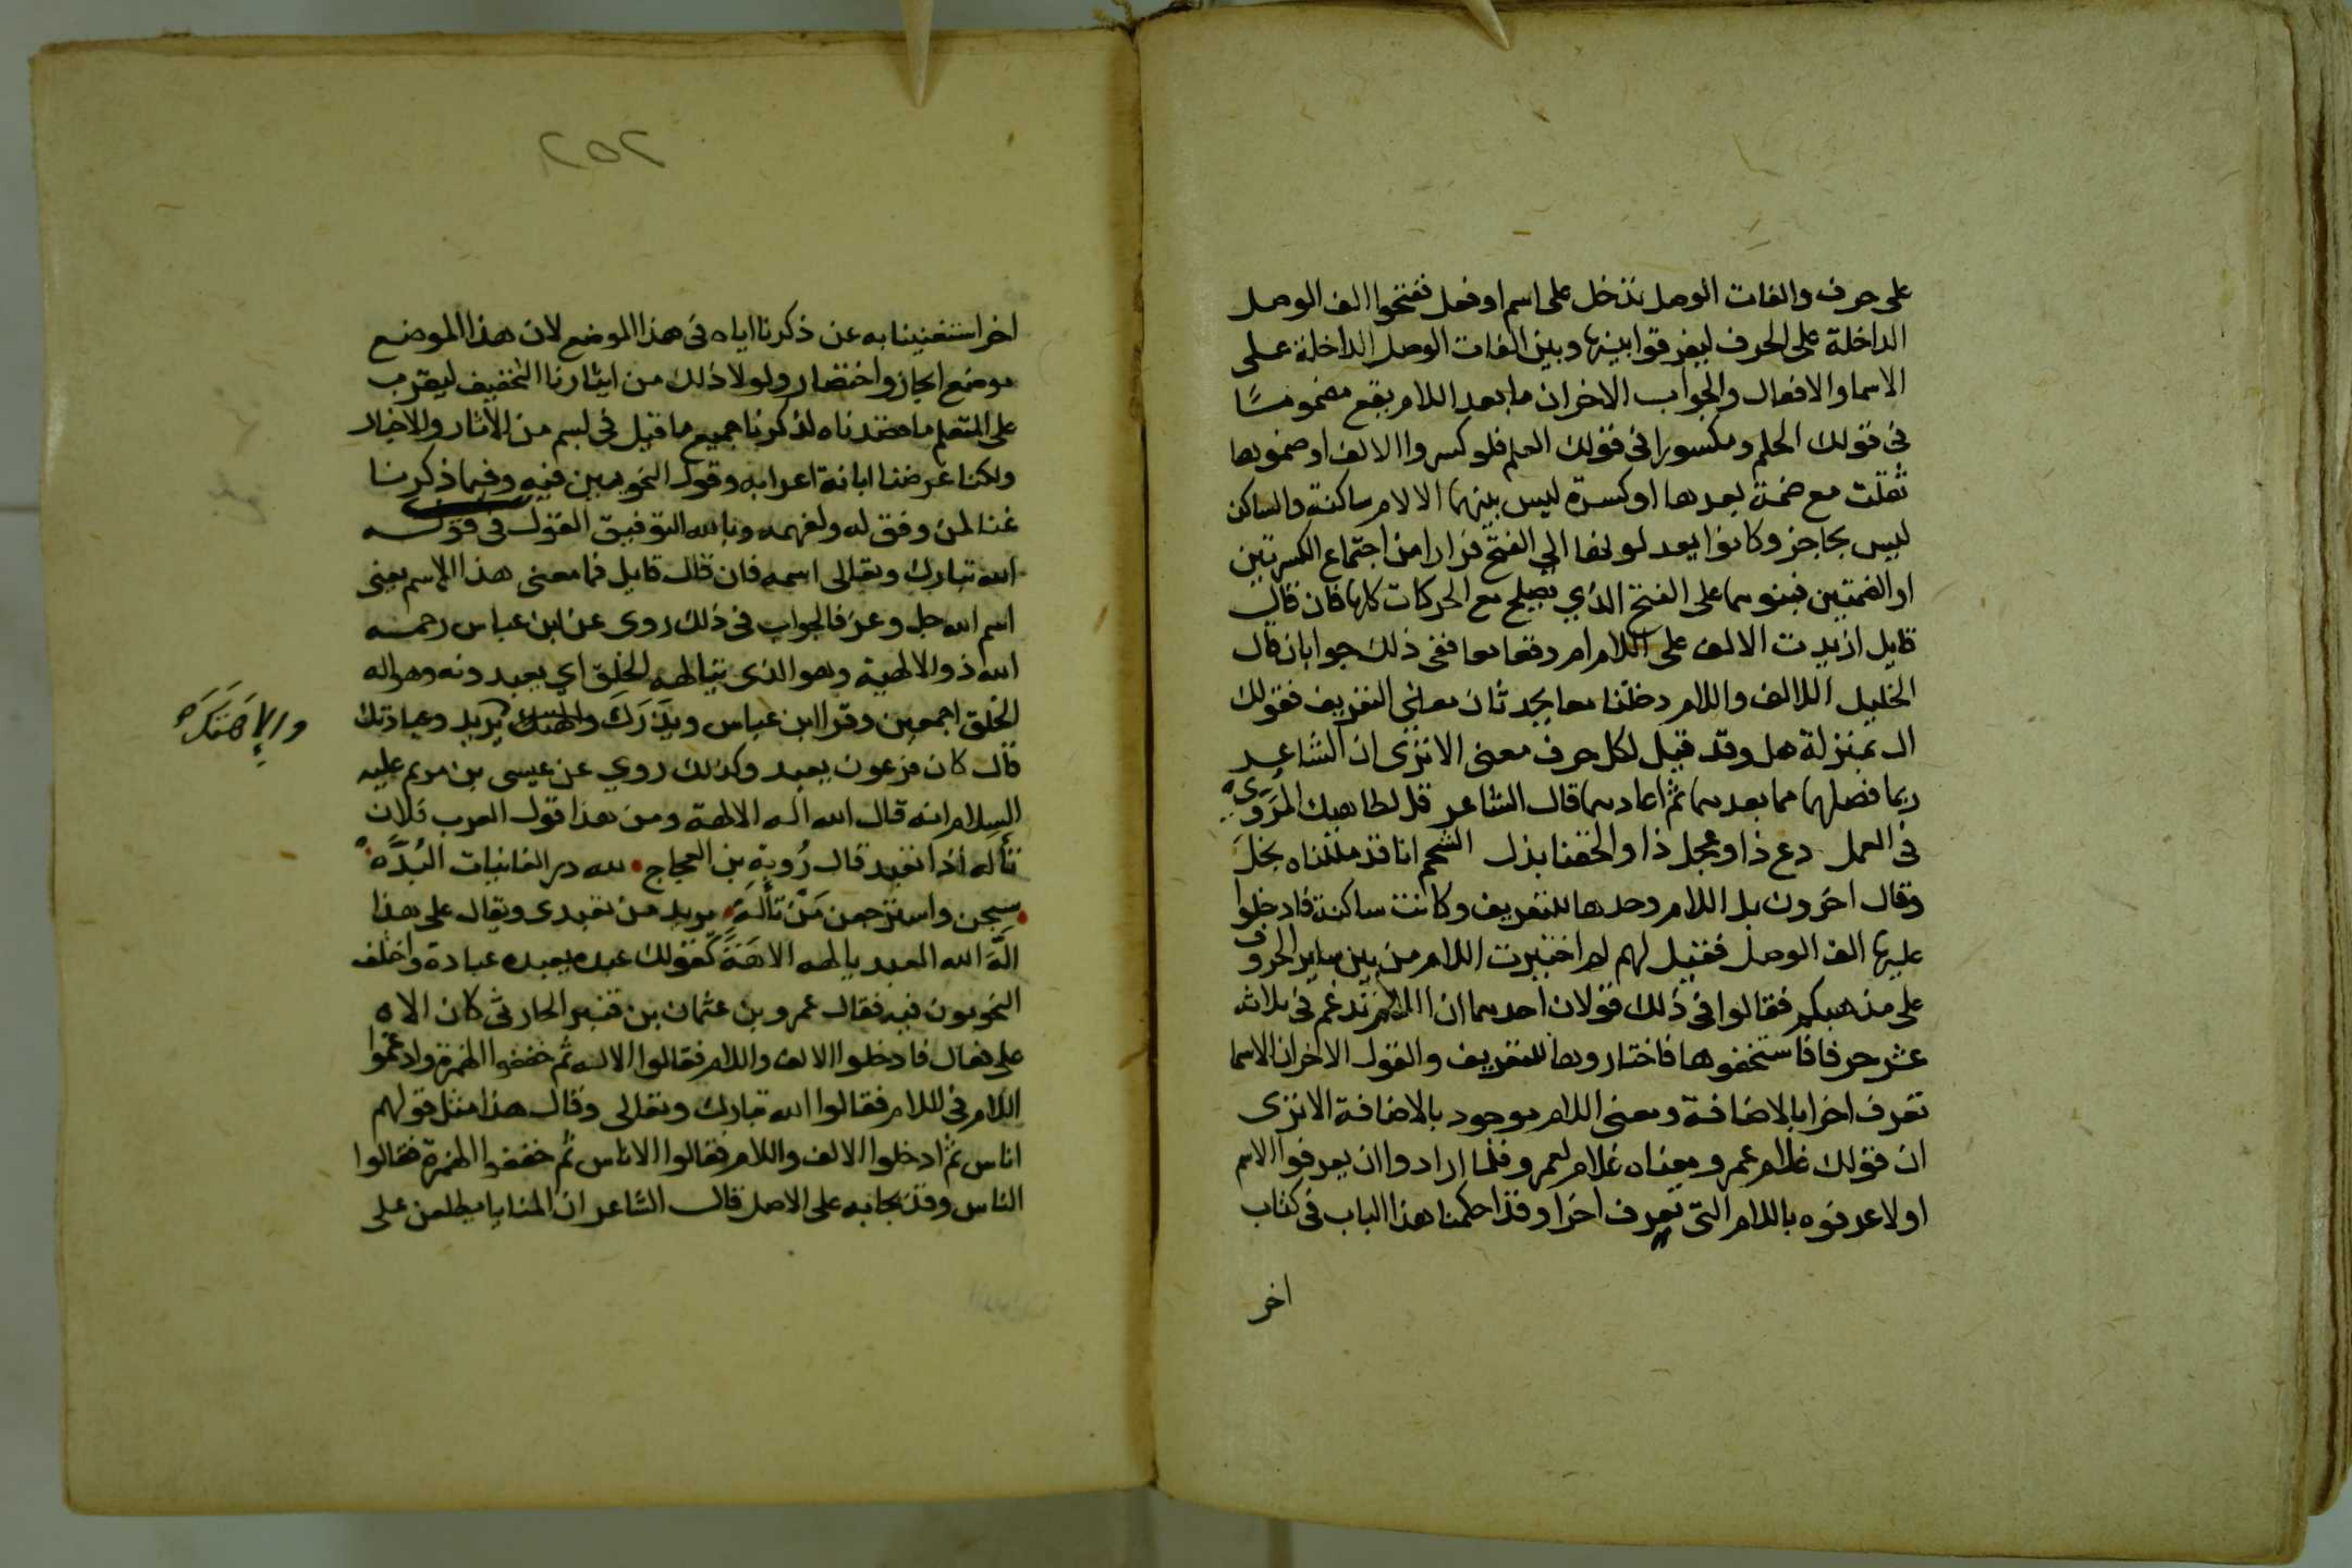 على حرف والفات الوصل تدخل على اسم او فعل ففتحوا الف الوصل
الداخلة على الحرف ليفرقوا بينها وبين الفات الوصل الداخلة على
الاسما والافعال والجواب الاخر ان ما بعد اللام يقع مضموما
فى قولك الحلم ومكسورا فى قولك العلم فلو كسروا الالف او ضموها
ثقلت مع ضمة بعدها او كسرة ليس بينهما الا لام ساكنة والساكن
ليس بحاجز وكانوا يعدلو لها الي الفتح فرارا من اجتماع الكسرتين
او الضمتين فبنوها على الفتح الذي يصلح مع الحركات كلها فان قال
قايل ازيدت الالف على اللام ام وقعا معا ففى ذلك جوابان قال
الخليل اللالف واللام دخلتا معا يحدثان معاني التعريف فقولك
ال بمنزلة هل وقد قيل لكل حرف معنى الا ترى ان الشاعر
ربما فصلهما مما بعدهما ثم اعادهما قال الشاعر قل لطاهيك المروي
فى العمل دع ذا وعجل ذا والحقنا بذل الشحم انا قد مللناه بخل
وقال اخرون بل اللام وحدها للتعريف وكانت ساكنة فادخلوا
عليها الف الوصل فقيل لهم لم اختيرت اللام من بين ساير الحروف
على مذهبكم فقالوا فى ذلك قولان احدهما ان اللام تدغم فى ثلاثة
عشر حرفا فاستخفوها فاختاروها للتعريف والقول الاخر ان الاسما
تعرف اخرا بالاضافة ومعنى اللام موجود بالاضافة الا ترى
ان قولك غلام عمرو معناه غلام لعمرو فلما ارادوا ان يعرفوا الاسم
اولا عرفوه باللام التى تعرف اخرا وقد احكمنا هذا الباب فى كتاب
اخر
٢٥٢
اخر استغنينا به عن ذكرنا اياه فى هذا الموضع لان هذا الموضع
موضع ايجاز واختصار ولولا ذلك من ايثارنا التخفيف ليقرب
على المتعلم ما قصدناه لذكرنا جميع ما قيل فى بسم من الاثار والاخبار
ولكنا غرضنا ابانة اعرابه وقول النحويين فيه وفيما ذكرنا
غنا لمن وفق له ولفهمه وبالله التوفيق القول فى قوله
الله تبارك وتعالى اسمه فان قال قايل فما معنى هذا الاسم يعنى
اسم الله جل وعز فالجواب فى ذلك روى عن ابن عباس رحمه
الله ذو الالهية وهو الذى يتالهه الخلق اي يعبدونه وهو اله
الخلق اجمعين وقرا ابن عباس ويذرك والهتك يريد وعبادتك
والاهتك
قال كان فرعون يعبد وكذلك روي عن عيسى بن مريم عليه
السلام انه قال الله اله الالهة ومن هذا قول العرب فلان
تاله اذا تعبد قال رُوبة بن العجاج لله در الغانيات المُدَّه
سبحن واسترجعن مَن تألّه يريد من تعبدى ويقال على هذا
الَهَ الله العبد يالهه الاهَة كقولك عبده يعبده عبادة واختلف
النحويون فيه فقال عمرو بن عثمان بن قنبر الحارثى كان الاه
على فعال فادخلوا الالف واللام فقالوا الاله ثم خففوا الهمزة وادغموا
اللام فى اللام فقالوا الله تبارك وتعالى وقال هذا مثل قولهم
اناس ثم ادخلوا الالف واللام فقالوا الاناس ثم خففوا الهمزة فقالوا
الناس وقد يجا به على الاصل قال الشاعر ان المنايا يطلعن على